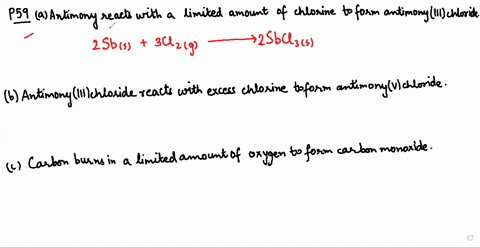 P59 (a) Antimony reacts with a limited amount of chlorine to form antimony(III) chloride
2Sb(s) + 3Cl2(g) ⟶ 2SbCl3(s)
(b) Antimony(III)chloride reacts with excess chlorine to form antimony(V)chloride.
(c) Carbon burns in a limited amount of oxygen to form carbon monoxide.